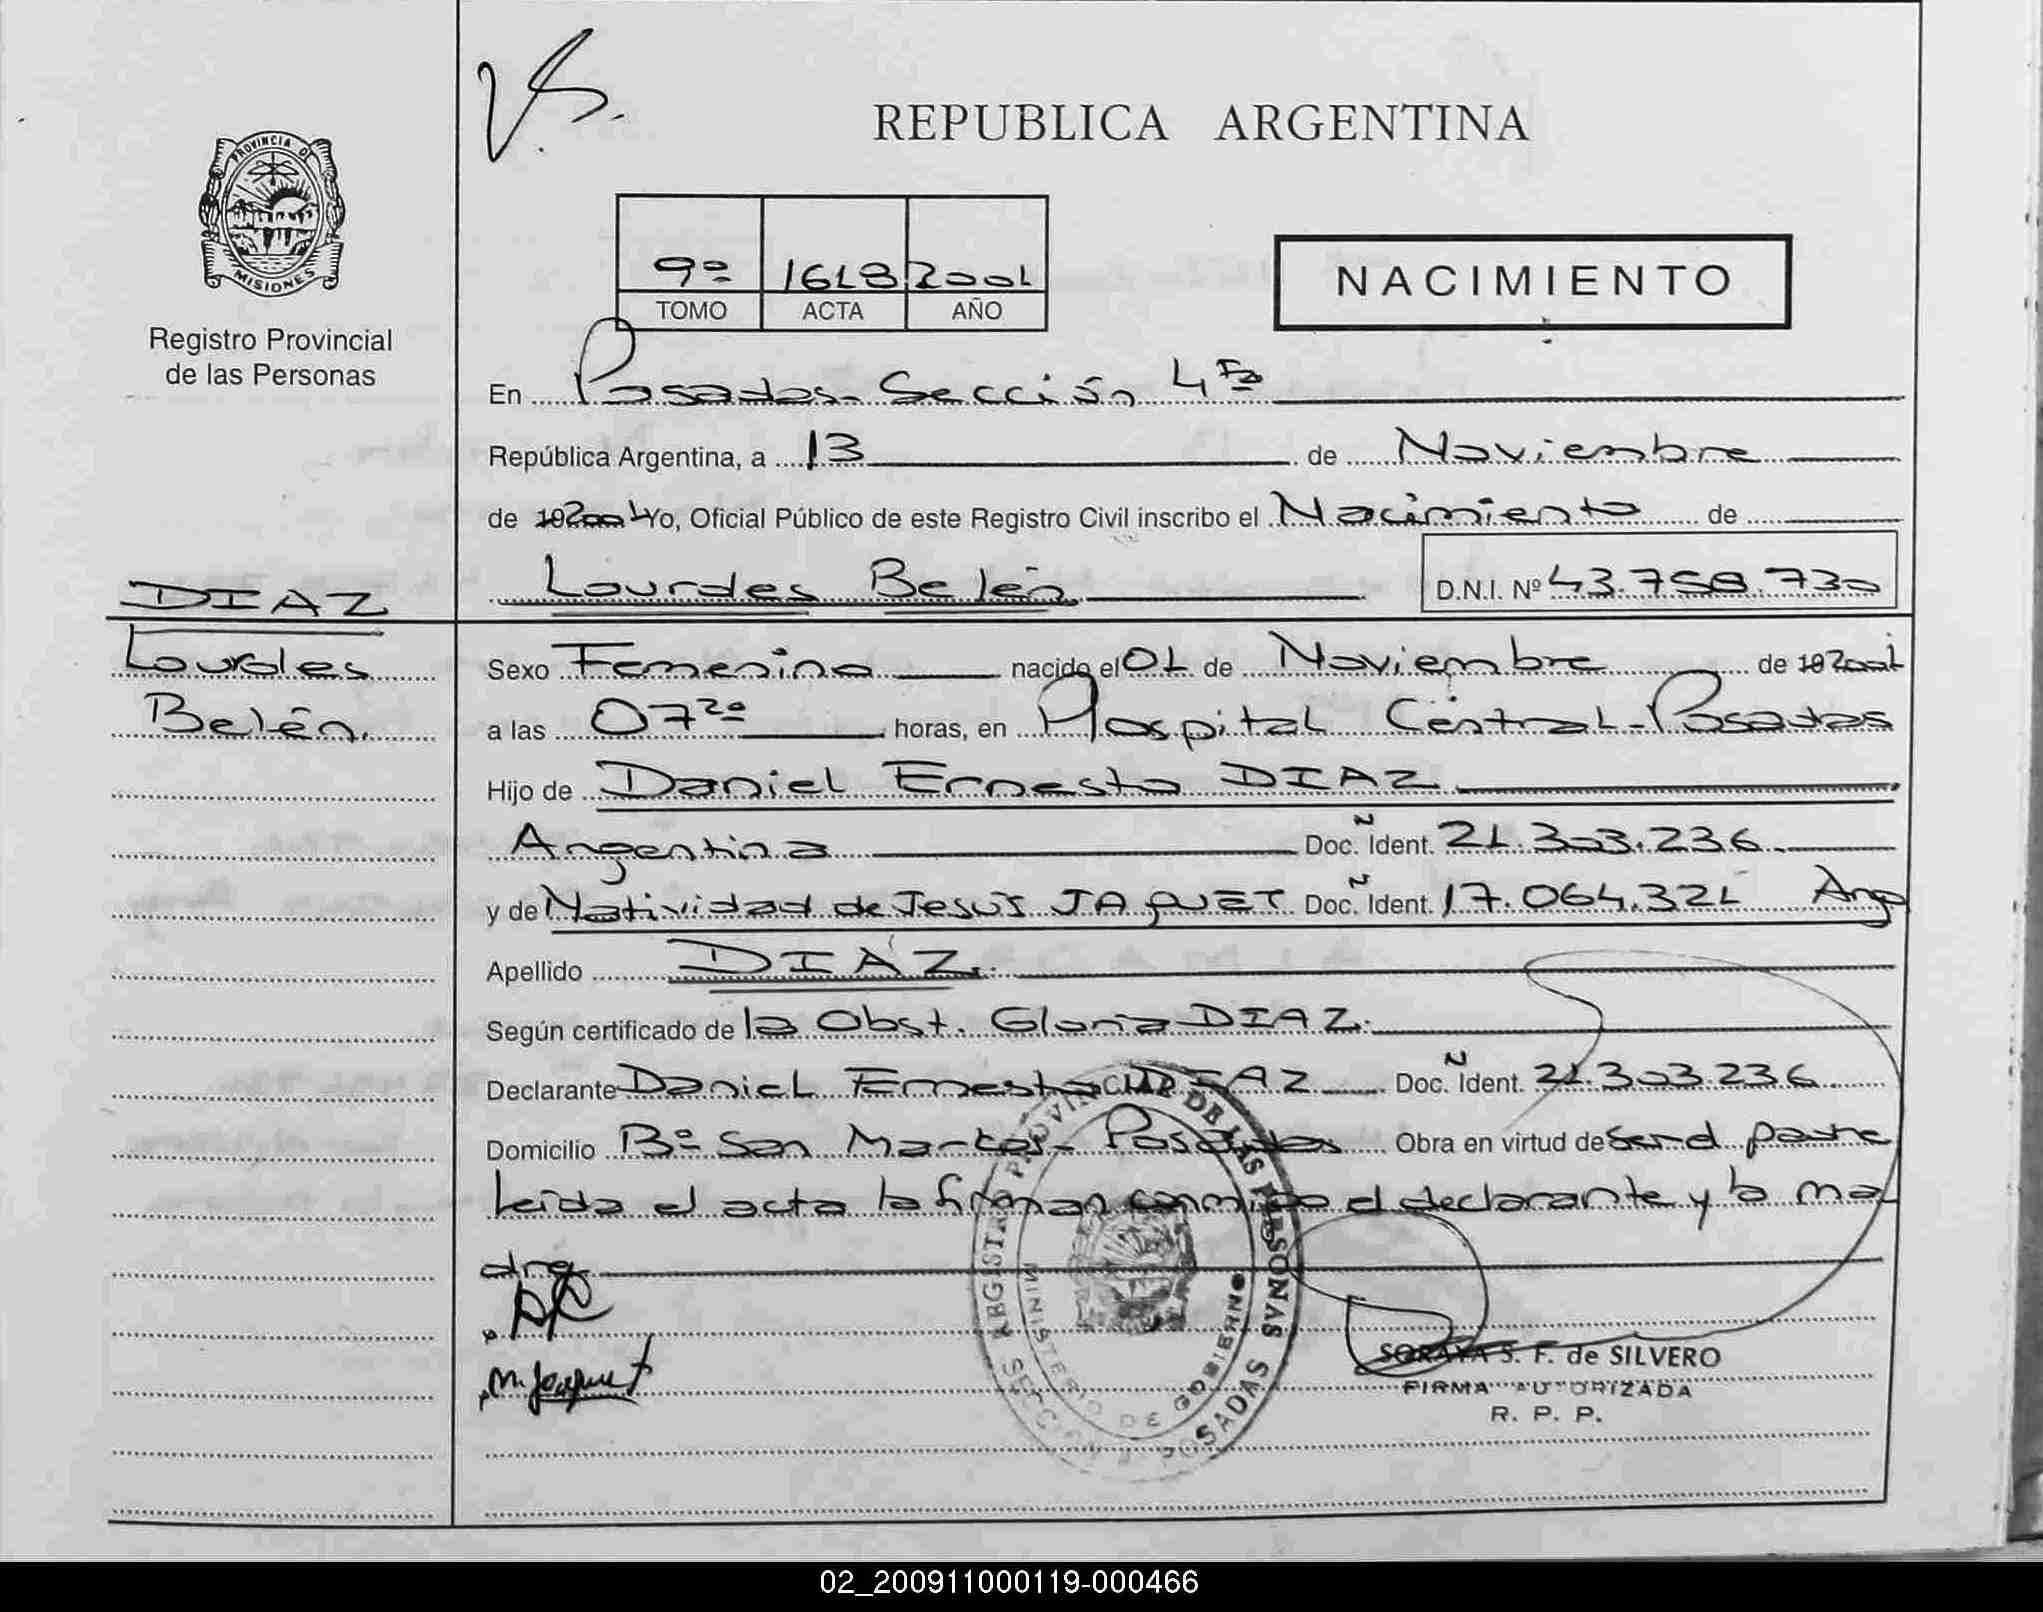 V.S.
REPUBLICA ARGENTINA
PROVINCIA D
MISIONES
Registro Provincial
de las Personas
9º 1618 2001
TOMO ACTA AÑO
NACIMIENTO
En Posadas - Sección 4ta
República Argentina, a 13 de Noviembre
de 192001 Yo, Oficial Público de este Registro Civil inscribo el Nacimiento de
Lourdes Belén D.N.I. Nº 43.758.730
DIAZ
Lourdes
Belén.
Sexo Femenino nacido el 01 de Noviembre de 19 2001
a las 07 20 horas, en Hospital Central - Posadas
Hijo de Daniel Ernesto DIAZ
Argentina Doc. Ñ Ident. 21.303.236
y de Natividad de Jesús JAQUET Doc. Ñ Ident. 17.064.321 Arg
Apellido DIAZ
Según certificado de la Obst. Gloria DIAZ.
Declarante Daniel Ernesto DIAZ Doc. Ñ Ident. 21.303.236
Domicilio Bº San Marcos - Posadas Obra en virtud de ser el padre
leida el acta la firman conmigo el declarante y la ma
dre
M. Jaquet
REGISTRO PROVINCIAL DE LAS PERSONAS
MINISTERIO DE GOBIERNO
SECCION POSADAS
SORAYA S. F. de SILVERO
FIRMA AUTORIZADA
R. P. P.
02_200911000119-000466